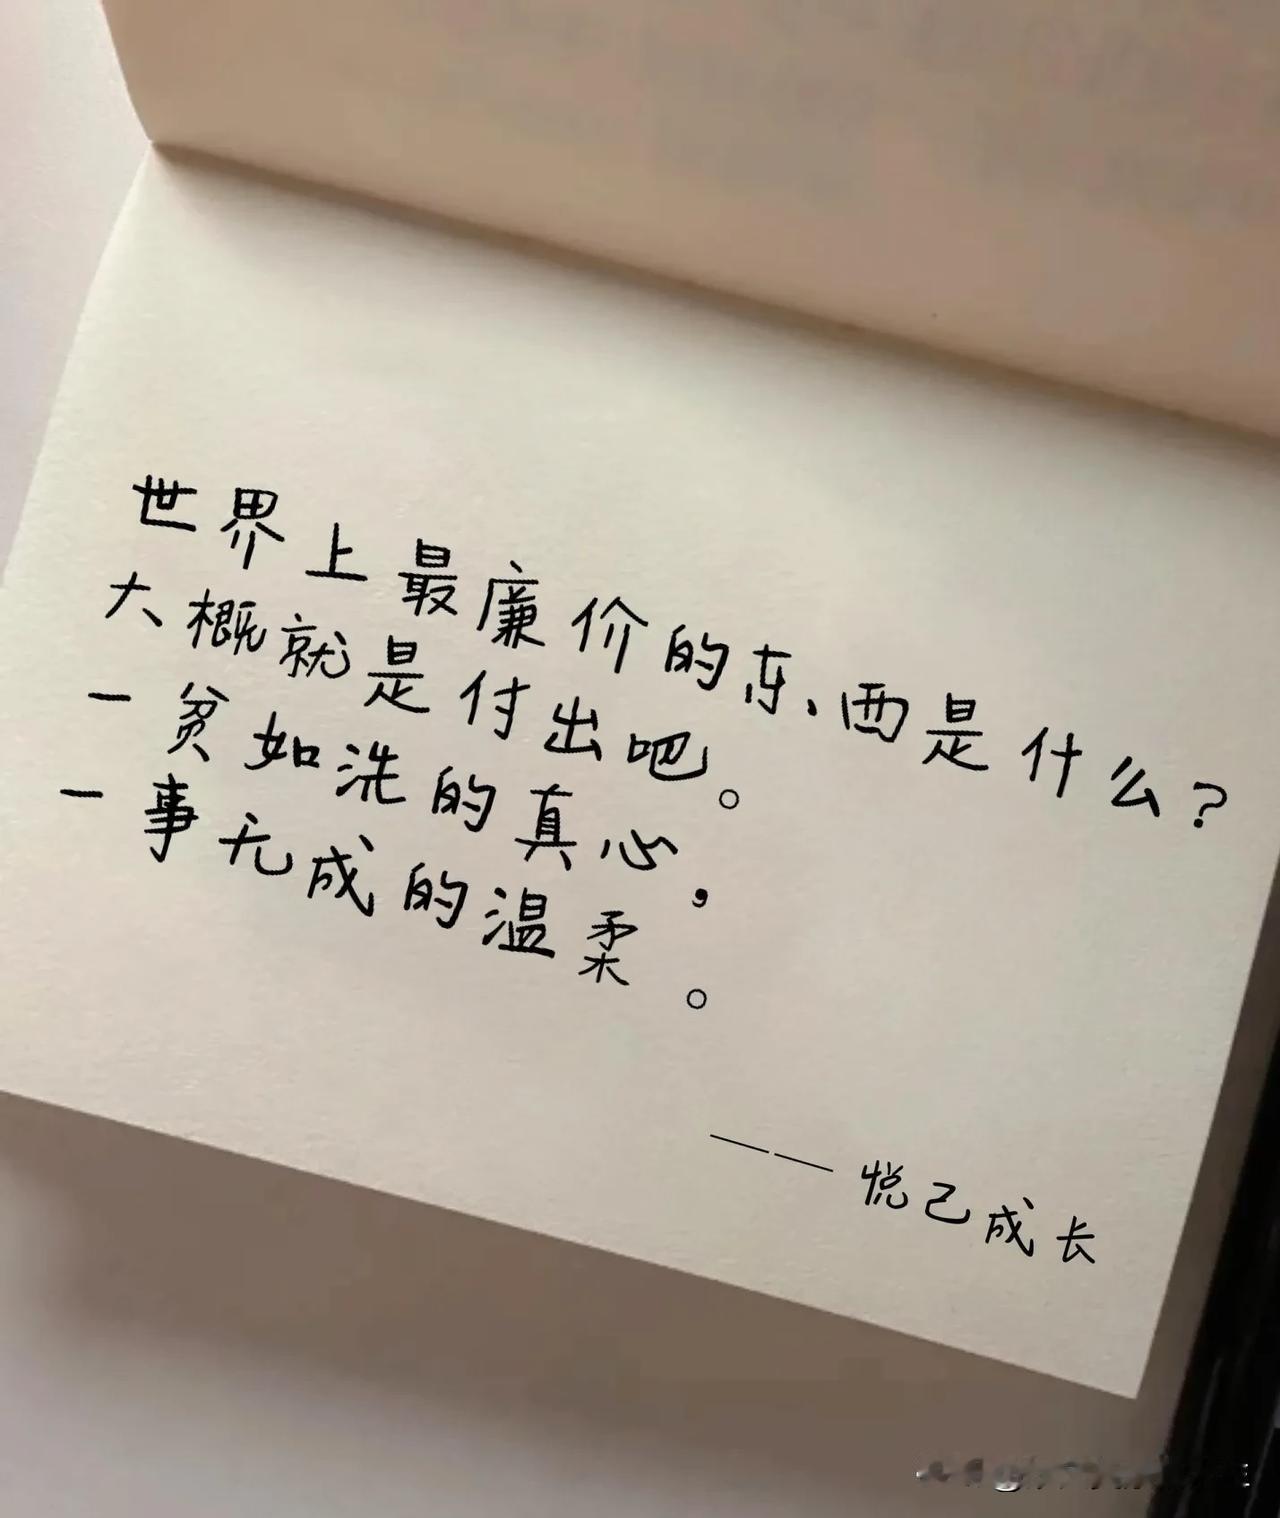 世界上最廉价的东西是什么？
大概就是付出吧。
一贫如洗的真心，
一事无成的温柔。
——悦己成长